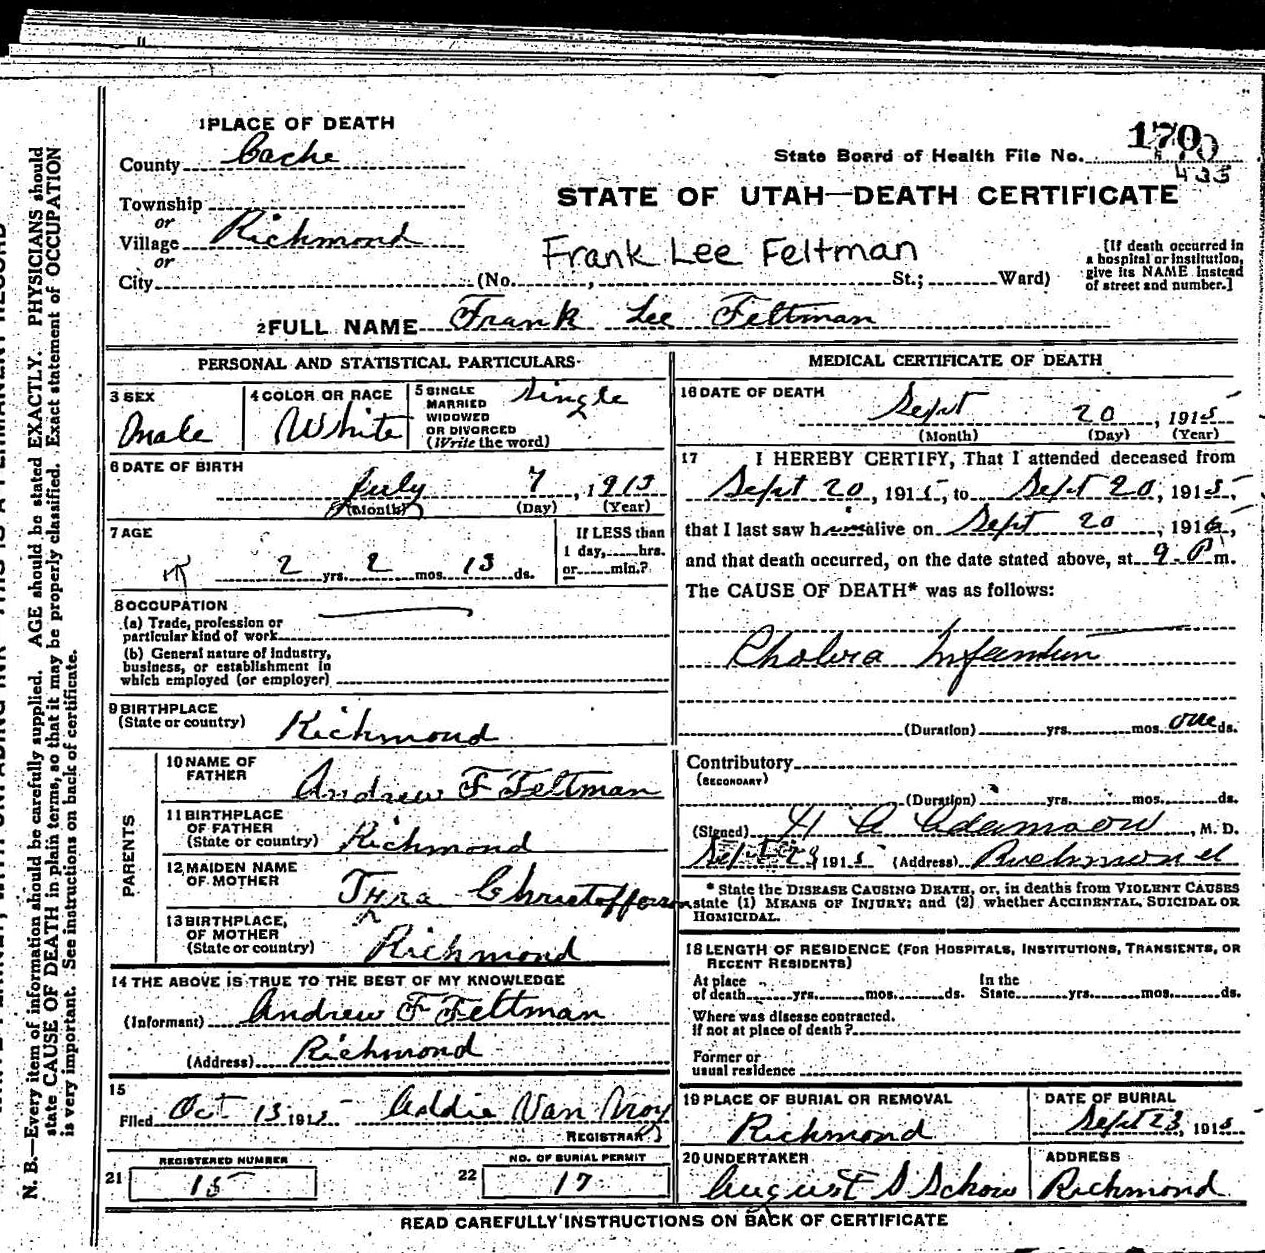 1 PLACE OF DEATH
County Cache
State Board of Health File No. 170
433
Township
or
Village Richmond
or
City (No. , St.; Ward)
STATE OF UTAH—DEATH CERTIFICATE
Frank Lee Feltman
[If death occurred in
a hospital or institution,
give its NAME instead
of street and number.]
2 FULL NAME Frank Lee Feltman
PERSONAL AND STATISTICAL PARTICULARS
3 SEX
Male
4 COLOR OR RACE
White
5 SINGLE
MARRIED
WIDOWED
OR DIVORCED
(Write the word)
Single
6 DATE OF BIRTH
July 7, 1913
(Month) (Day) (Year)
7 AGE
2 yrs. 2 mos. 13 ds.
If LESS than
1 day, hrs.
or min.?
8 OCCUPATION
(a) Trade, profession or
particular kind of work
(b) General nature of industry,
business, or establishment in
which employed (or employer)
9 BIRTHPLACE
(State or country) Richmond
PARENTS
10 NAME OF
FATHER Andrew F Feltman
11 BIRTHPLACE
OF FATHER
(State or country) Richmond
12 MAIDEN NAME
OF MOTHER Thra Christofferson
13 BIRTHPLACE,
OF MOTHER
(State or country) Richmond
14 THE ABOVE IS TRUE TO THE BEST OF MY KNOWLEDGE
(Informant) Andrew F Feltman
(Address) Richmond
15
Filed Oct 13 1915 Addie Van Noy
REGISTRAR
21 REGISTERED NUMBER
15
22 NO. OF BURIAL PERMIT
17
MEDICAL CERTIFICATE OF DEATH
16 DATE OF DEATH
Sept 20, 1915
(Month) (Day) (Year)
17 I HEREBY CERTIFY, That I attended deceased from
Sept 20, 1915, to Sept 20, 1915,
that I last saw him alive on Sept 20, 1915,
and that death occurred, on the date stated above, at 9 P m.
The CAUSE OF DEATH* was as follows:
Cholera Infantum
(Duration) yrs. mos. one ds.
Contributory
(SECONDARY)
(Duration) yrs. mos. ds.
(Signed) H A Adamson, M. D.
Sept 1915 (Address) Richmond
* State the DISEASE CAUSING DEATH, or, in deaths from VIOLENT CAUSES
state (1) MEANS OF INJURY; and (2) whether ACCIDENTAL, SUICIDAL OR
HOMICIDAL.
18 LENGTH OF RESIDENCE (FOR HOSPITALS, INSTITUTIONS, TRANSIENTS, OR
RECENT RESIDENTS)
At place
of death yrs. mos. ds.
In the
State yrs. mos. ds.
Where was disease contracted.
if not at place of death?
Former or
usual residence
19 PLACE OF BURIAL OR REMOVAL
Richmond
DATE OF BURIAL
Sept 23, 1915
20 UNDERTAKER
August S Schow
ADDRESS
Richmond
READ CAREFULLY INSTRUCTIONS ON BACK OF CERTIFICATE
N. B.—Every item of information should be carefully supplied. AGE should be stated EXACTLY. PHYSICIANS should
state CAUSE OF DEATH in plain terms, so that it may be properly classified. Exact statement of OCCUPATION
is very important. See instructions on back of certificate.